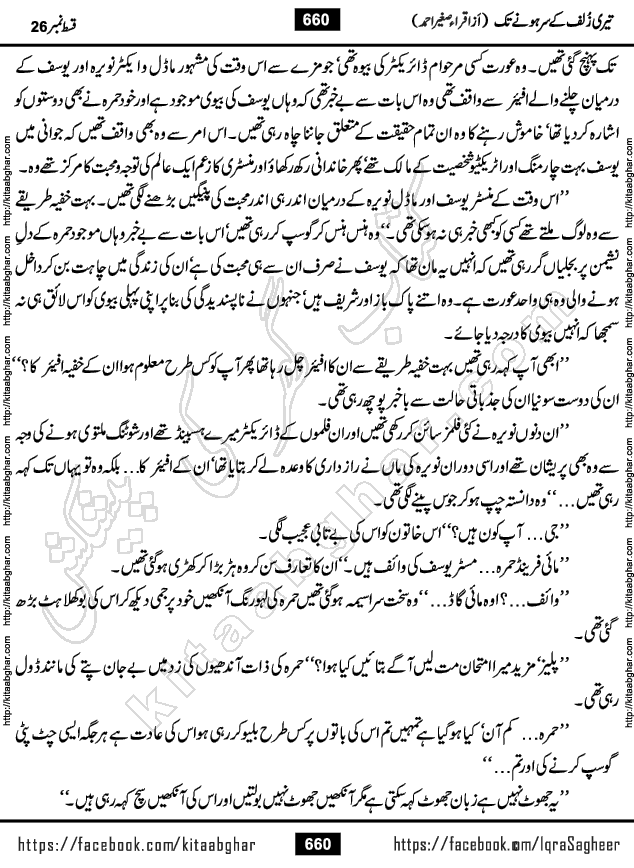 قسط نمبر 26
660
تیری زُلف کے سر ہونے تک (از اقراء صغیر احمد)
تک پہنچ گئی تھیں۔ وہ عورت کسی مرحوام ڈائریکٹر کی بیوہ تھی‘ جو مزے سے اس وقت کی مشہور ماڈل و ایکٹر نویرہ اور یوسف کے
درمیان چلنے والے افیئر سے واقف تھی وہ اس بات سے بے خبر تھی کہ وہاں یوسف کی بیوی موجود ہے اور خود حمرہ نے بھی دوستوں کو
اشارہ کر دیا تھا‘ خاموش رہنے کا وہ ان تمام حقیقت کے متعلق جاننا چاہ رہی تھیں۔ اس امر سے وہ بھی واقف تھیں کہ جوانی میں
یوسف بہت چارمنگ اور اٹریکٹیو شخصیت کے مالک تھے‘ پھر خاندانی رکھ رکھاؤ اور منسٹری کا زعم ایک عالم کی توجہ و محبت کا مرکز تھے وہ۔
’’اس وقت کے منسٹر یوسف اور ماڈل نویرہ کے درمیان اندر ہی اندر محبت کی پینگیں بڑھنے لگی تھیں۔ بہت خفیہ طریقے
سے وہ لوگ ملتے تھے کسی کو کبھی خبر ہی نہ ہو سکی تھی۔‘‘ وہ ہنس ہنس کر گوسپ کر رہی تھیں‘ اس بات سے بے خبر وہاں موجود حمرہ کے دل
نشیمن پر بجلیاں گر رہی تھیں کہ انہیں یہ مان تھا کہ یوسف نے صرف ان سے ہی محبت کی ہے‘ ان کی زندگی میں چاہت بن کر داخل
ہونے والی وہ ہی واحد عورت ہے۔ وہ اتنے پاک باز اور شریف ہیں‘ جنہوں نے ناپسندیدگی کی بنا پر اپنی پہلی بیوی کو اس لائق ہی نہ
سمجھا کہ انہیں بیوی کا درجہ دیا جائے۔
’’ابھی آپ کہہ رہی تھیں بہت خفیہ طریقے سے ان کا افیئر چل رہا تھا پھر آپ کو کس طرح معلوم ہوا ان کے خفیہ افیئر کا؟‘‘
ان کی دوست سونیا ان کی جذباتی حالت سے باخبر پوچھ رہی تھی۔
’’ان دنوں نویرہ نے کئی فلمز سائن کر رکھی تھیں اور ان فلموں کے ڈائریکٹر میرے ہسبینڈ تھے اور شوٹنگ ملتوی ہونے کی وجہ
سے وہ بھی پریشان تھے اور اسی دوران نویرہ کی ماں نے رازداری کا وعدہ لے کر بتایا تھا‘ ان کے افیئر کا… بلکہ وہ تو یہاں تک کہہ
رہی تھیں…‘‘ وہ دانستہ چپ ہو کر جوس پینے لگی تھی۔
’’جی… آپ کون ہیں؟‘‘ اس خاتون کو اس کی بے تابی عجیب لگی۔
’’مائی فرینڈ حمرہ… مسٹر یوسف کی وائف ہیں۔‘‘ ان کا تعارف سن کر وہ ہڑبڑا کر کھڑی ہو گئی تھیں۔
’’وائف…؟ اوہ مائی گاڈ…‘‘ وہ سخت سراسیمہ ہو گئی تھیں حمرہ کی لہو رنگ آنکھیں خود پر جمی دیکھ کر اس کی بوکھلاہٹ بڑھ
گئی تھی۔
’’پلیز‘ مزید میرا امتحان مت لیں آگے بتائیں کیا ہوا؟‘‘ حمرہ کی ذات آندھیوں کی زد میں بے جان پتے کی مانند ڈول
رہی تھی۔
’’حمرہ… کم آن‘ کیا ہو گیا ہے تمہیں تم اس کی باتوں پر کس طرح بلیو کر رہی ہو اس کی عادت ہے ہر جگہ ایسی چٹ پٹی
گوسپ کرنے کی اور تم…‘‘
’’یہ جھوٹ نہیں ہے زبان جھوٹ کہہ سکتی ہے مگر آنکھیں جھوٹ نہیں بولتیں اور اس کی آنکھیں سچ کہہ رہی ہیں۔‘‘
http://kitaabghar.com http://kitaabghar.com http://kitaabghar.com http://kitaabghar.com
http://kitaabghar.com http://kitaabghar.com http://kitaabghar.com http://kitaabghar.com
کتاب گھر کی پیشکش
kitaabghar.com
https://facebook.com/kitaabghar
660
https://facebook.com/IqraSagheer